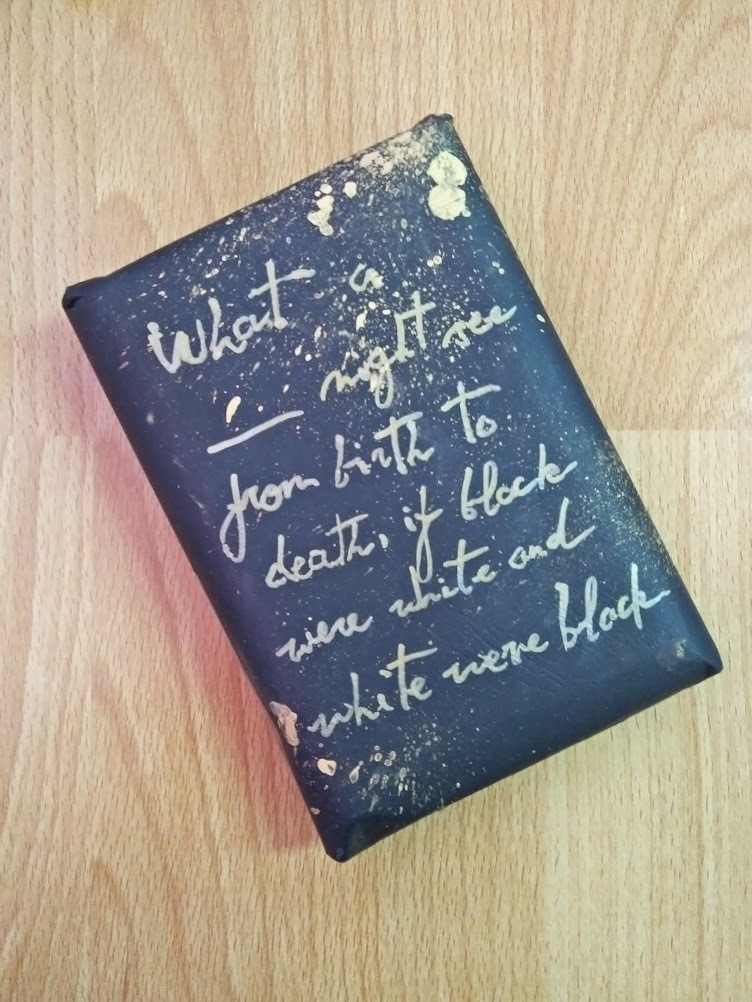 What a
— might see
from birth to
death, if black
were white and
white were black